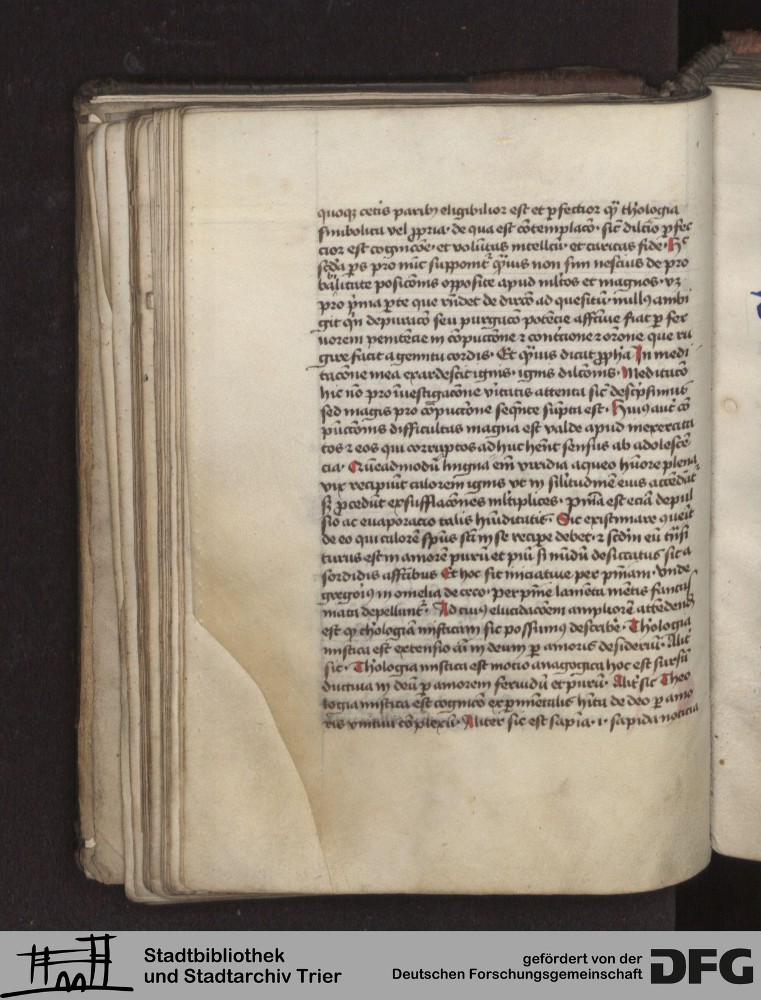 quoqꝫ cetis paribꝫ eligibilior est et ꝑfectior qͫ theologia
simbolica vel ꝓpria · de qua est cōtemplacō · sic̄ dilcio ꝑfec
cior est cognicōe · et volūtas intellcū · et caritas fide · Hͨ
scd̄a ps pro nūc supponitꝰ qͫuis non sim nescius de pro
bālitate posicōnis opposite apud mltos et magnos · vꝫ
pro p̄ma ꝑte que rn̄det de dirco ad quesitū · nullꝰ ambi
git qn̄ depuracō seu purgacō potēcie affctiue fiat ꝑ fer
uorem penitēcie in cōpūctōne ⁊ contricōne ⁊ orōne que ru
gire facit a gemitu cordis · Et qͫuis dicat ꝓpha In medi
tacōne mea exardescit ignis · ignis dilcōnis · Meditacō
hic nō pro īuestigacōne vītatis attenta sic̄ desc̄psimus
sed magis pro cōpūctōne seqn̄te sūpta est · Huiꝰ aut̄ cō
pūctōnis difficultas magna est valde apud inexercita
tos ⁊ eos qui corruptos adhuc hēnt sensus ab adolescē
cia · Quēadmodū lingna em̄ viridia aqueo hūore plena
vix recipiūt calorem ignis vt in silitudinē eius accēdāt
sꝫ p̄cedūt exsufflacōnes mltiplices · P̄ma est eciā depul
sio ac euaporacio talis hūiditatis · Sic existimare queūt
de eo qui calorē sp̄us sc̄i in se recipe debet · ⁊ scd̄m eū
turus est in amorē purū et piū si mūdū desiccatus sic a
sordidis affctibus Et hoc sit iniciatiue per pn̄iam · vnde
gregoriꝰ in omelia de ceco · Per pn̄ie lamēta mētis fantas
mata depellunt̄ · Ad cuiꝰ elucidacōem ampliorē attēdendū
est qꝫ theologiā misticam sic possumꝰ describe · Theologia
mistica est extensio āi in deum ꝑ amoris desideriū · Alit̄
sic · Theologia mistica est motio anagogica hoc est sursū
ductiua in deū ꝑ amorem feruidū et purū · Alit̄ sic Theo
logia mistica est cognicō exꝑimentalis hīta de deo ꝑ amo
ris vnitiui cōplexū · Aliter sic est sapīa · i · sapida noticia
Stadtbibliothek
und Stadtarchiv Trier
gefördert von der
Deutschen Forschungsgemeinschaft
DFG